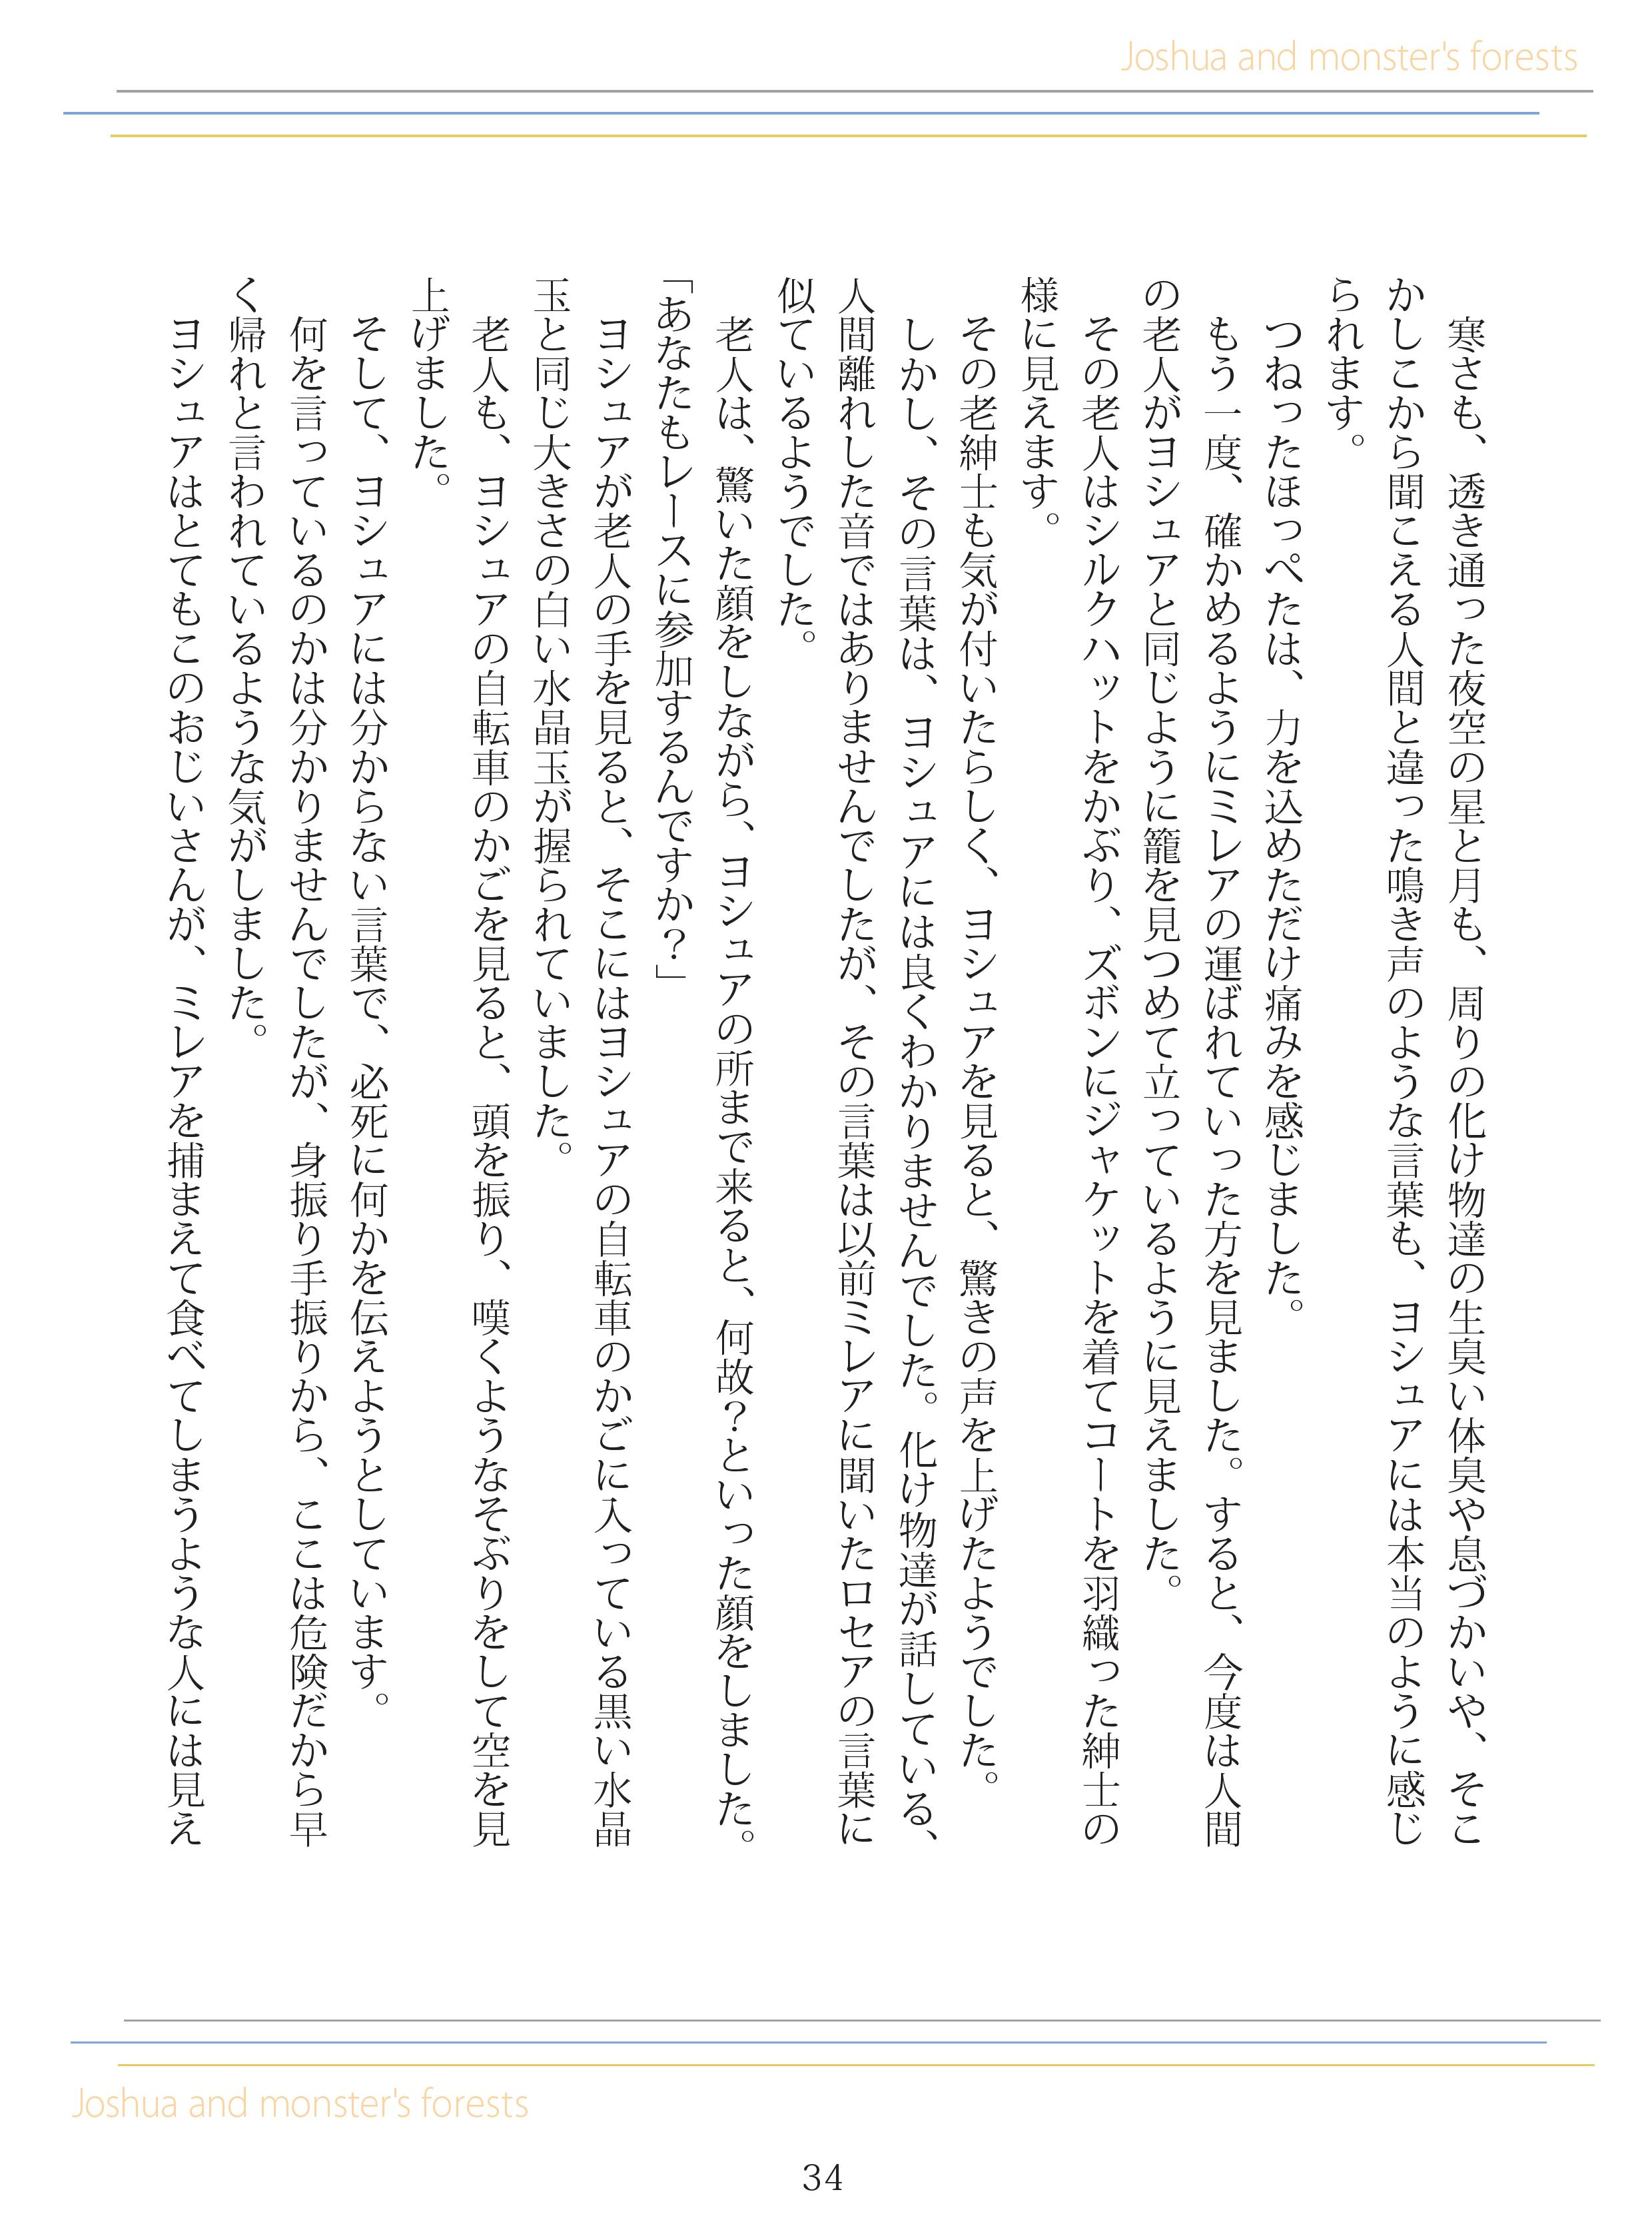 Joshua and monster's forests
　寒さも、透き通った夜空の星と月も、周りの化け物達の生臭い体臭や息づかいや、そこ
かしこから聞こえる人間と違った鳴き声のような言葉も、ヨシュアには本当のように感じ
られます。
　つねったほっぺたは、力を込めただけ痛みを感じました。
　もう一度、確かめるようにミレアの運ばれていった方を見ました。すると、今度は人間
の老人がヨシュアと同じように籠を見つめて立っているように見えました。
　その老人はシルクハットをかぶり、ズボンにジャケットを着てコートを羽織った紳士の
様に見えます。
　その老紳士も気が付いたらしく、ヨシュアを見ると、驚きの声を上げたようでした。
　しかし、その言葉は、ヨシュアには良くわかりませんでした。化け物達が話している、
人間離れした音ではありませんでしたが、その言葉は以前ミレアに聞いたロセアの言葉に
似ているようでした。
　老人は、驚いた顔をしながら、ヨシュアの所まで来ると、何故？といった顔をしました。
「あなたもレースに参加するんですか？」
　ヨシュアが老人の手を見ると、そこにはヨシュアの自転車のかごに入っている黒い水晶
玉と同じ大きさの白い水晶玉が握られていました。
　老人も、ヨシュアの自転車のかごを見ると、頭を振り、嘆くようなそぶりをして空を見
上げました。
　そして、ヨシュアには分からない言葉で、必死に何かを伝えようとしています。
　何を言っているのかは分かりませんでしたが、身振り手振りから、ここは危険だから早
く帰れと言われているような気がしました。
　ヨシュアはとてもこのおじいさんが、ミレアを捕まえて食べてしまうような人には見え
Joshua and monster's forests
34